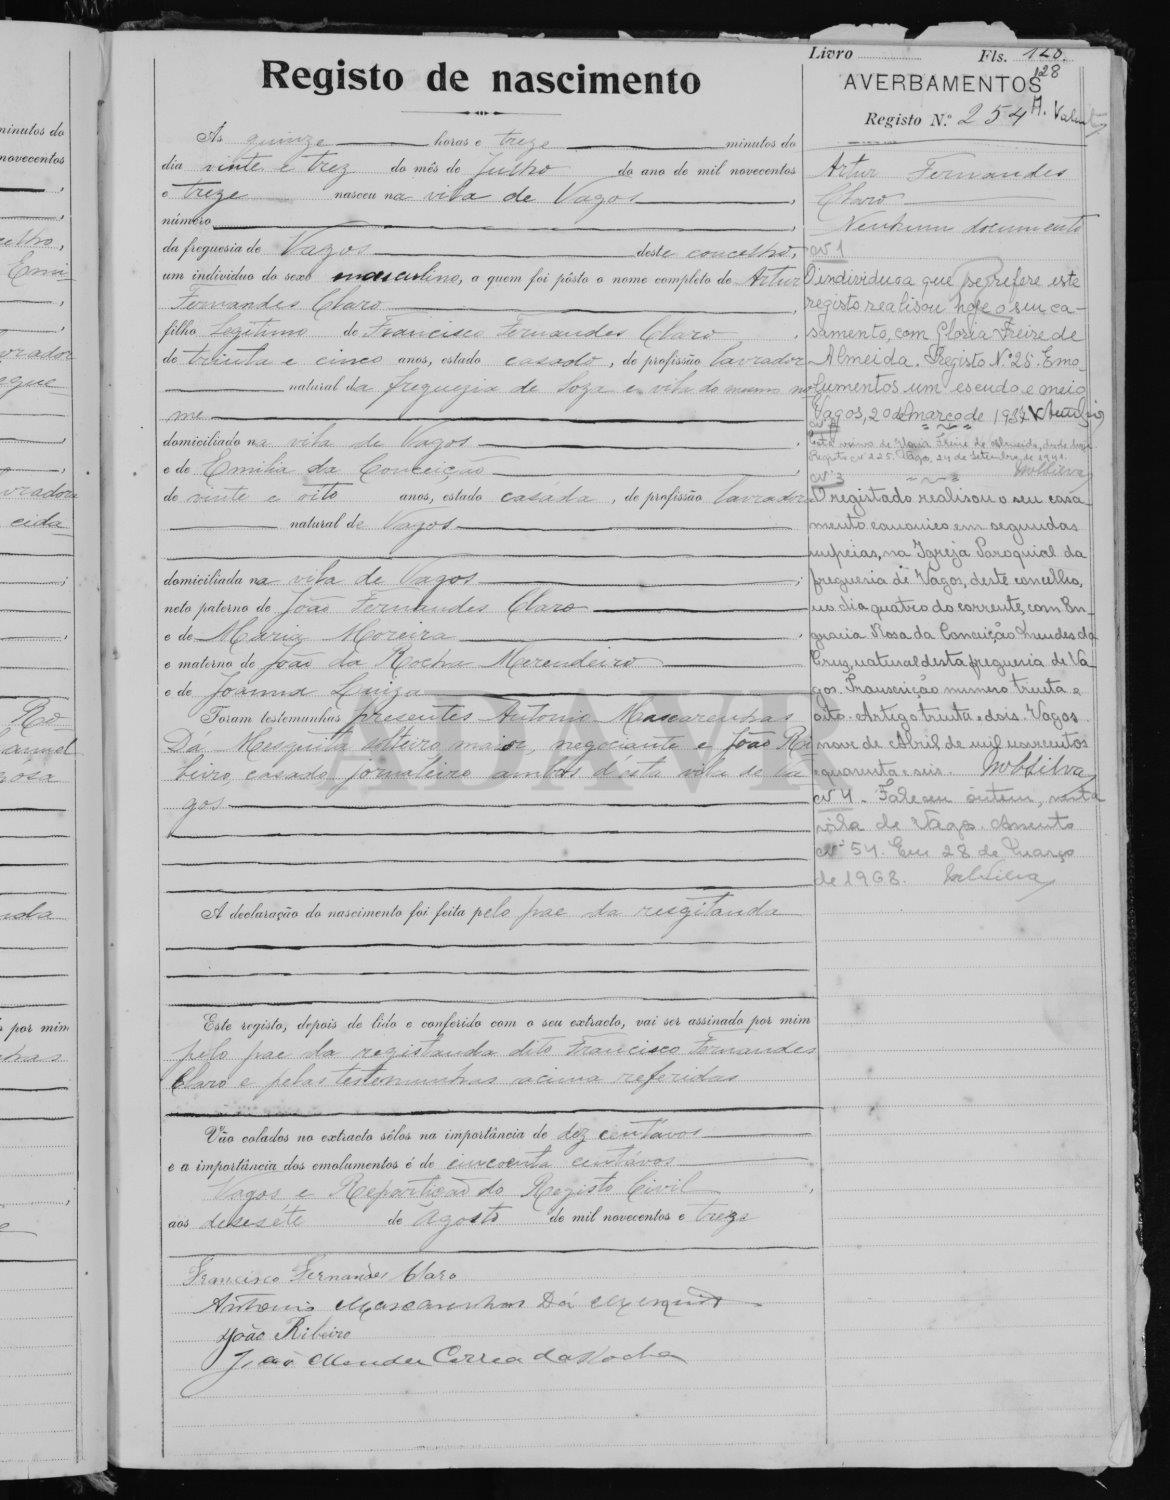 Livro Fls. 128.
128
Registo de nascimento
AVERBAMENTOS
Registo N.º 254
Às quinze horas e treze minutos do
dia vinte e trez do mês de Julho do ano de mil novecentos
e treze nasceu na vila de Vagos,
número
da freguesia de Vagos deste concelho,
um individuo do sexo masculino, a quem foi pôsto o nome completo de Artur
Fernandes Claro,
filho legitimo de Francisco Fernandes Claro
de trinta e cinco anos, estado casado, de profissão lavrador
natural da freguezia de Soza e vila do mesmo no
me
domiciliado na vila de Vagos
e de Emilia da Conceição,
de vinte e oito anos, estado casada, de profissão lavradora
natural de Vagos
domiciliada na vila de Vagos;
neto paterno de João Fernandes Claro
e de Maria Moreira,
e materno de João da Rocha Merendeiro
e de Joanna Luiza
Foram testemunhas presentes Antonio Mascarenhas
Dá Mesquita solteiro, maior, negociante e João Ri
beiro, casado, jornaleiro ambos d'esta vila de Va
gos
A declaração do nascimento foi feita pelo pae da resgitanda
Este registo, depois de lido e conferido com o seu extracto, vai ser assinado por mim
pelo pae da registanda dito Francisco Fernandes
Claro e pelas testemunhas acima referidas
Vão colados no extracto sêlos na importância de dez centavos
e a importância dos emolumentos é de cincoenta centávos
Vagos e Repartição do Registo Civil,
aos desesete de Agosto de mil novecentos e treze
Francisco Fernandes Claro
Antonio Mascarenhas Dá Mesquita
João Ribeiro
João Mendes Correa da Rocha
Artur Fernandes
Claro
Nenhum documento
Nº 1
O individuo a que se refere este
registo realisou hoje o seu ca-
samento, com Gloria Freire de
Almeida. Registo N.º 25. Emo-
lumentos um escudo e meio
Vagos, 20 de Março de
está viuvo de Gloria Freire de Almeida, desde hoje.
Registo nº 225. Vagos, 24 de Setembro de
Nº 3
O registado realisou o seu casa-
mento canonico em segundas
nupcias, na Igreja Paroquial da
freguesia de Vagos, deste concelho,
no dia quatro do corrente, com En-
gracia Rosa da Conceição Mendes da
Cruz, natural desta freguesia de Va-
gos. Transcrição numero trinta e
oito. Artigo trinta e dois. Vagos
nove de Abril de mil novecentos
e quarenta e seis.
Nº 4. Faleceu ontem, nesta
vila de Vagos. Assento
Nº 54. Em 28 de Março
de 1968.
ADAVR
minutos do
novecentos
por mim